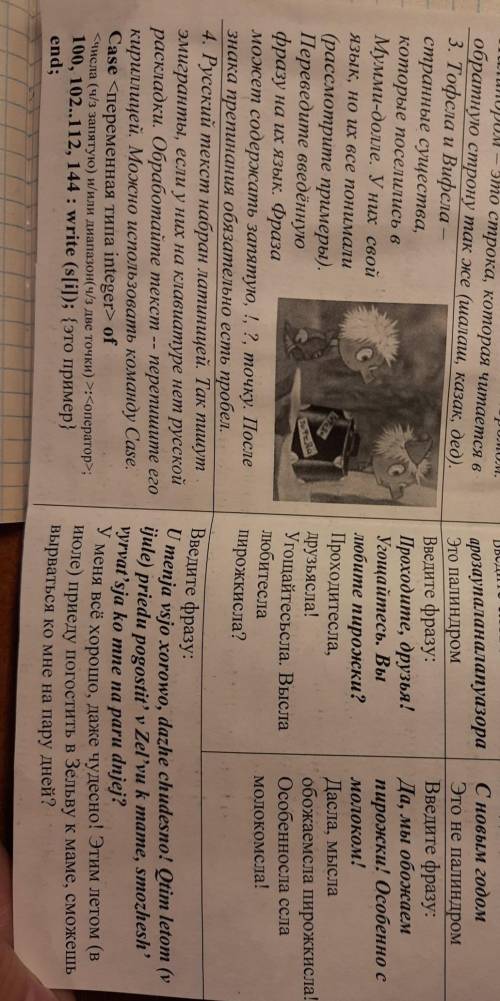 это строка, которая читается в
обратную строну так же (шалаш, казак, дед).
3. Тофсла и Вифсла –
странные существа,
которые поселились в
Мумми-долле. У них свой
язык, но их все понимали
(рассмотрите примеры).
Переведите введённую
фразу на их язык. Фраза
может содержать запятую, !, ?, точку. После
знака препинания обязательно есть пробел.
4. Русский текст набран латиницей. Так пишут
эмигранты, если у них на клавиатуре нет русской
раскладки. Обработайте текст -- перепишите его
кириллицей. Можно использовать команду Case.
Case <переменная типа integer> of
<числа (ч/з запятую) и/или диапазон(ч/з две точки) >:<оператор>;
100, 102..112, 144 : write (s[i]); {это пример}
end;
фрозаупаланалапуазорф
Это палиндром
Введите фразу:
Проходите, друзья!
Угощайтесь. Вы
любите пирожки?
Проходитесла,
друзьясла!
Угощайтесьсла. Высла
любитесла
пирожкисла?
С новым годом
Это не палиндром
Введите фразу:
Да, мы обожаем
пирожки! Особенно с
молоком!
Дасла, мысла
обожаемсла пирожкисла!
Особенносла ссла
молокомсла!
Введите фразу:
U menja vsjo xorowo, dazhe chudesno! Qtim letom (v
ijule) priedu pogostit' v Zel'vu k mame, smozhesh'
vyrvat'sja ko mne na paru dnjej?
У меня всё хорошо, даже чудесно! Этим летом (в
июле) приеду погостить в Зельву к маме, сможешь
вырваться ко мне на пару дней?